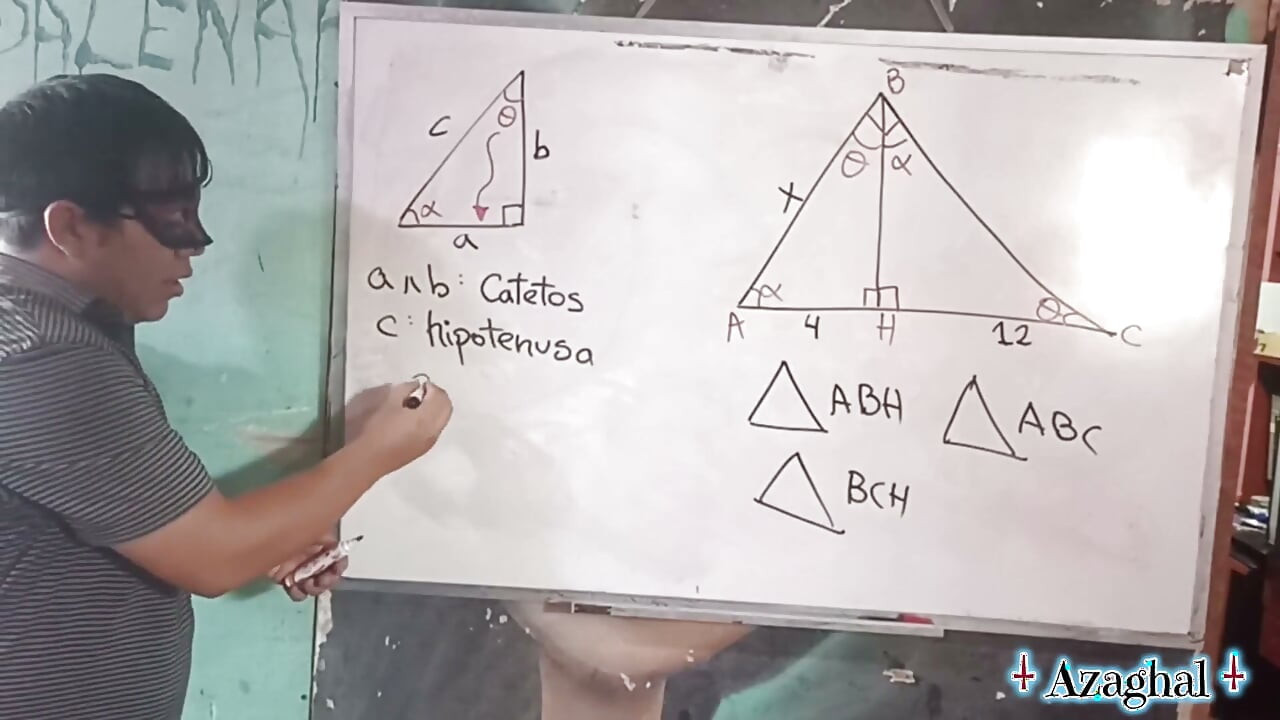 c
θ
b
α
a
a ∧ b: Catetos
c: hipotenusa
B
θ α
x
α
θ
A 4 H 12 C
△ ABH
△ ABC
△ BCH
Azaghal